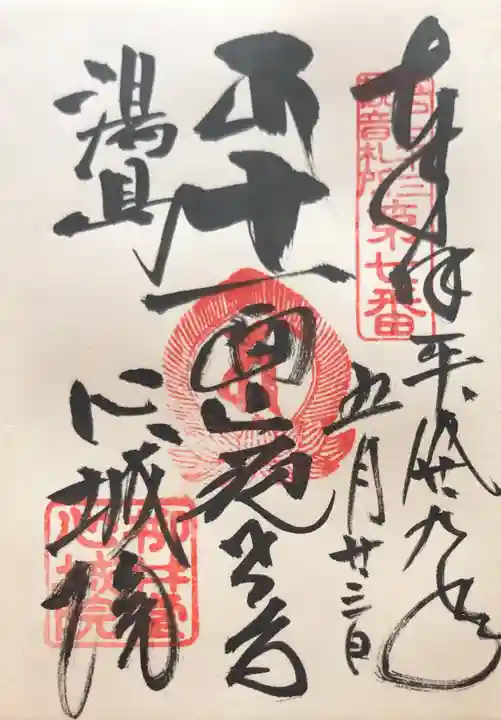 奉拝 平成廿九年
五月廿三日
観音札所
第七番
十一面観世音
湯島
心城院
柳井堂
心城院